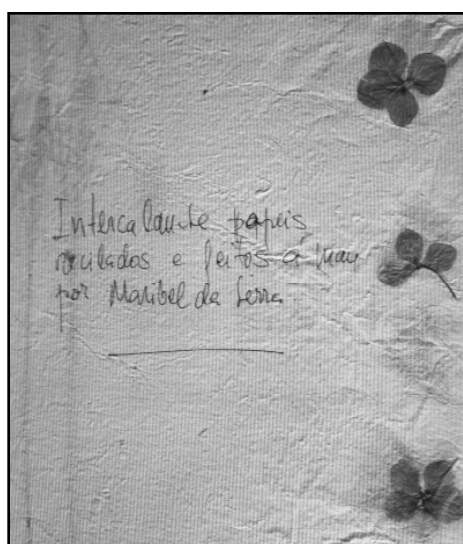 Intercalaute papeis
reciclados e feitos á mau
por Maribel da Serra.